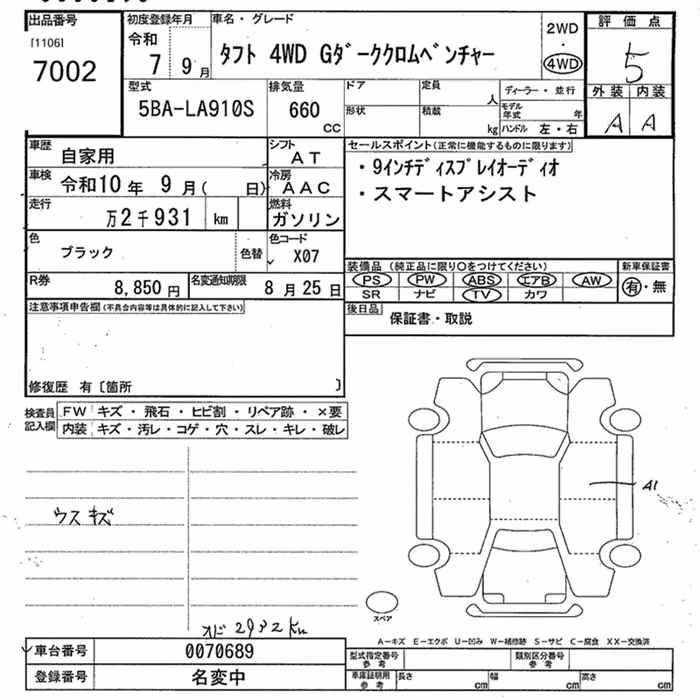 出品番号
[1106]
7002
初度登録年月
令和
7 9月
車名・グレード
タフト 4WD Gダーククロムベンチャー
2WD
・
4WD
評価点
5
外装 内装
A A
型式
5BA-LA910S
排気量
660
CC
ドア
定員
人
形状
積載
kg
ディーラー・並行
モデル年式 年
ハンドル 左・右
車歴
自家用
シフト
AT
車検
令和10年 9月( 日)
冷房
AAC
走行
万2千931 km
燃料
ガソリン
色
ブラック
色替
色コード
X07
R券
8,850円
名変通知期限
8月25日
セールスポイント(正常に機能するものに限ります)
・9インチディスプレイオーディオ
・スマートアシスト
装備品 (純正品に限り○をつけてください)
新車保証書
PS PW ABS エアB AW
SR ナビ TV カワ
有・無
後日品
保証書・取説
注意事項申告欄(不具合内容等は具体的に記入して下さい)
修復歴 有〔箇所 〕
検査員記入欄
FW キズ・飛石・ヒビ割・リペア跡・×要
内装 キズ・汚レ・コゲ・穴・スレ・キレ・破レ
A1
ウスキズ
スペア
スド2932km
A-キズ E-エクボ U-凹み W-補修跡 S-サビ C-腐食 XX-交換済
車台番号
0070689
登録番号
名変中
型式指定番号
参考
類別区分番号
参考
車庫証明用
参考
長さ cm
幅 cm
高さ cm